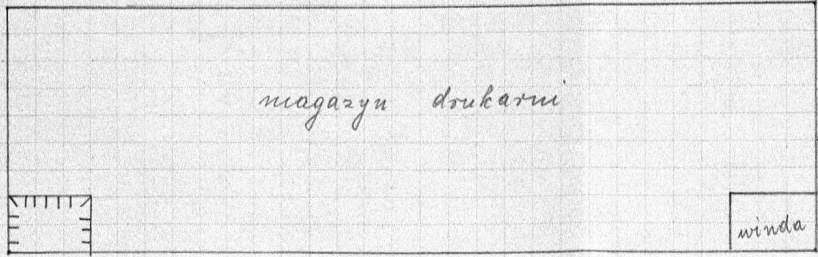 magazyn drukarni
winda